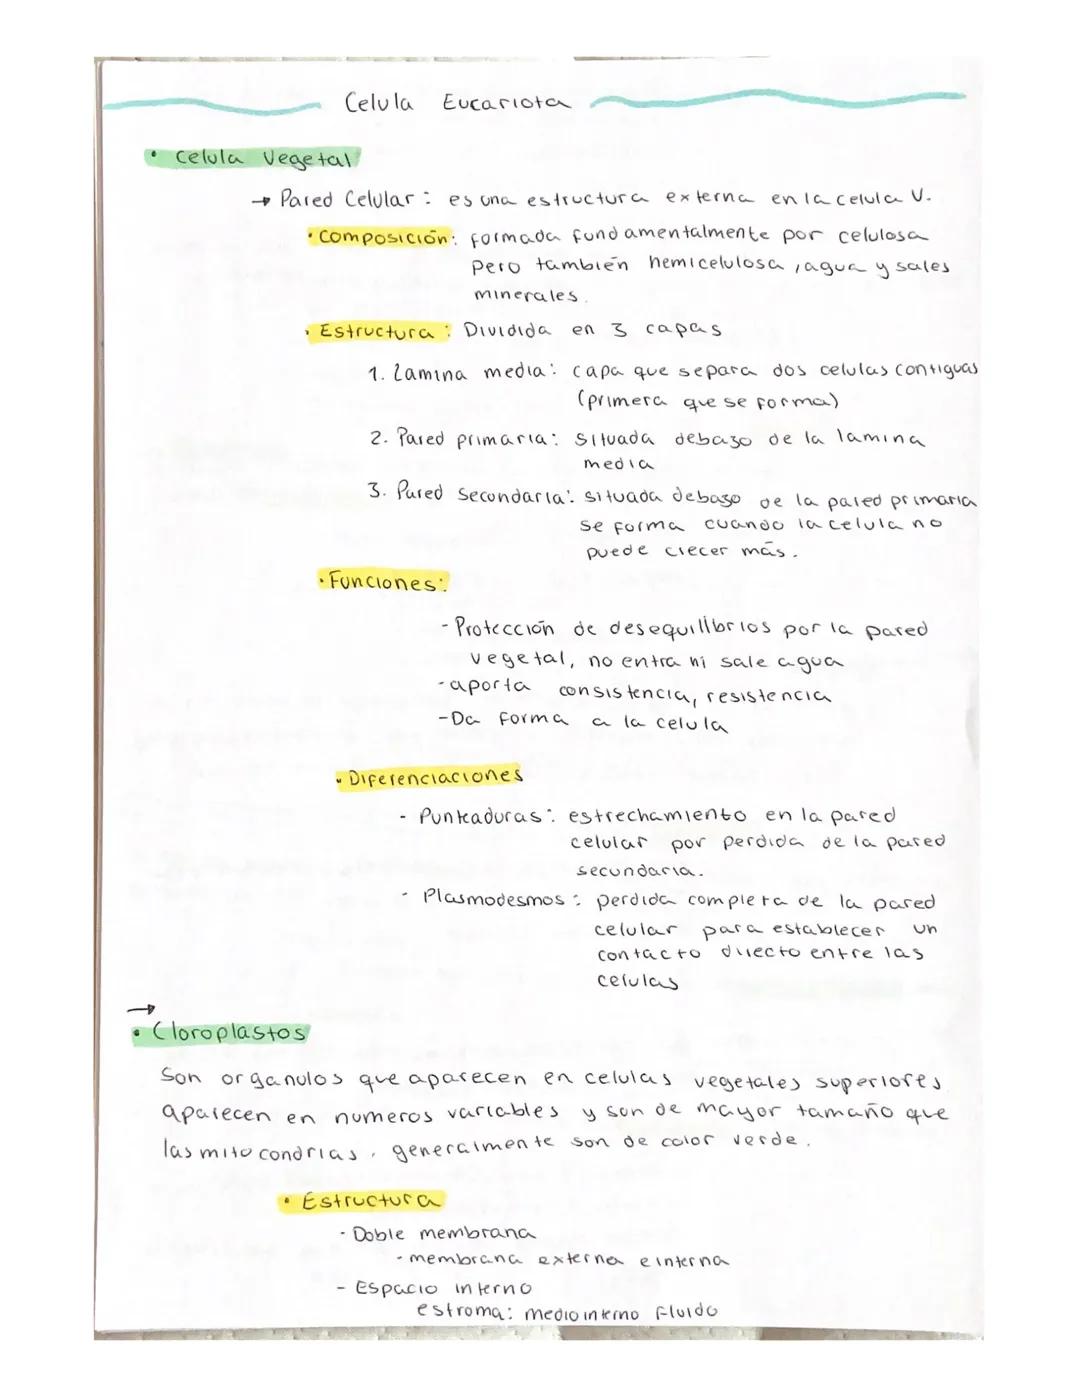 Celula Eucariota
• Celula Vegetal
→ Pared Celular: es una estructura externa en la celula V.
• Composición: formada fundamentalmente por celulosa
pero también hemicelulosa, agua y sales
minerales.
• Estructura: Dividida en 3 capas
1. Lamina media: capa que separa dos celulas contiguas
(primera que se forma)
2. Pared primaria: situada debajo de la lamina
media
3. Pared secundaria: situada debajo de la pared primaria
se forma cuando la celula no
puede crecer más.
• Funciones:
- Protección de desequilibrios por la pared
vegetal, no entra ni sale agua
- aporta consistencia, resistencia
- Da forma a la celula
• Diferenciaciones
- Punteaduras: estrechamiento en la pared
celular por perdida de la pared
secundaria.
- Plasmodesmos: perdida completa de la pared
celular para establecer un
contacto directo entre las
celulas
→
• Cloroplastos
Son organulos que aparecen en celulas vegetales superiores
aparecen en numeros variables y son de mayor tamaño que
las mitocondrias, generalmente son de color verde.
• Estructura
- Doble membrana
- membrana externa e interna
- Espacio interno
estroma: medio interno fluido